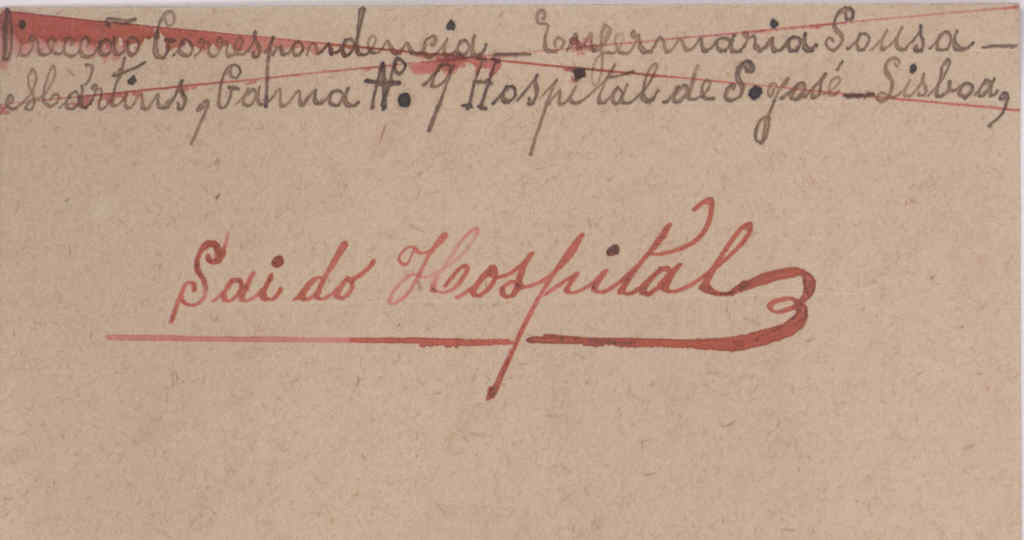 Direcção Correspondencia – Enfermaria Sousa –
Mártins, Cama Nº. 9 Hospital de S. José – Lisboa,
Sai do Hospital